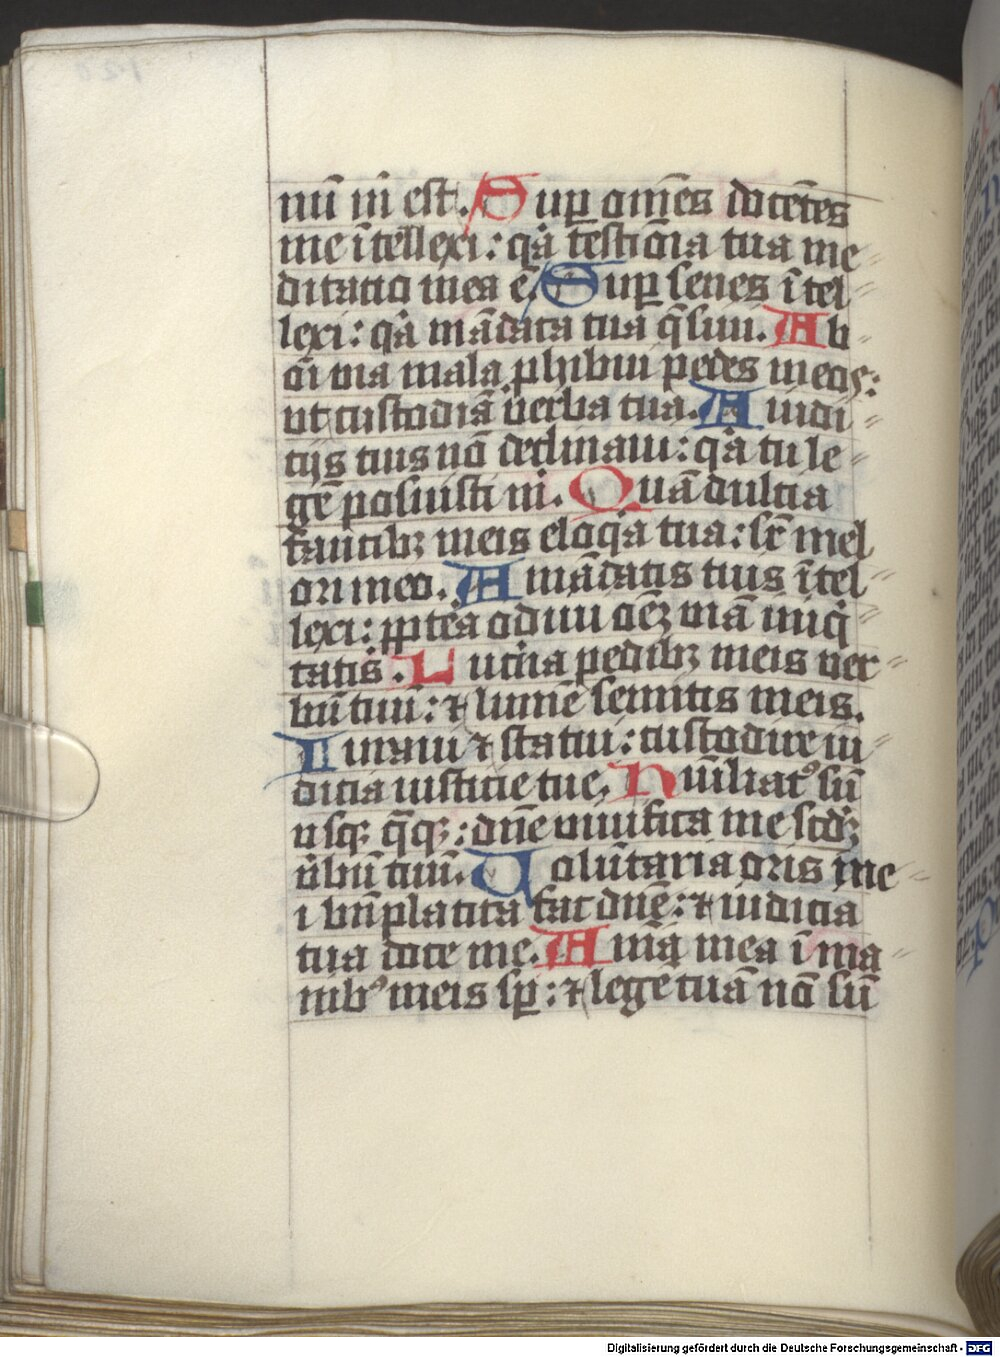 nũ m̃ est. Sup̲ om̃es docẽtes
me ĩtellexi: qͣa testio̅ia tua me
ditatio mea ẽ. Sup̲ senes ĩtel
lexi: qͣa mãdata tua q̃siui. Ab
oĩ via mala ꝓhibui pedes meos:
ut custodiã v̓erba tua. A iudi
tijs tuis nõ declinaui: qͣa tu le
gẽ posuisti m̃. Quã dulcia
faucibꝫ meis eloqͣa tua: sr̃ mel
ori meo. A mãdatis tuis ĩtel
lexi: ꝓpt̃ea odiui oẽꝫ viã iniqͥ
tatis. Luc̓na pedibꝫ meis ver
bũ tuũ: ⁊ lumẽ semitis meis.
Iuraui ⁊ statui: custodire iu
dicia iusticie tue. Hũiliatꝰ sũ
usqꝫ q̃qꝫ: dñe viuifica me scdꝫ
v̓bũ tuũ. Uolũtaria oris me
i bñplacita fac dñe: ⁊ iudicia
tua doce me. Aĩa mea ĩ ma
nibꝰ meis sp̲: ⁊ legẽ tuã nõ sũ
Digitalisierung gefördert durch die Deutsche Forschungsgemeinschaft - DFG